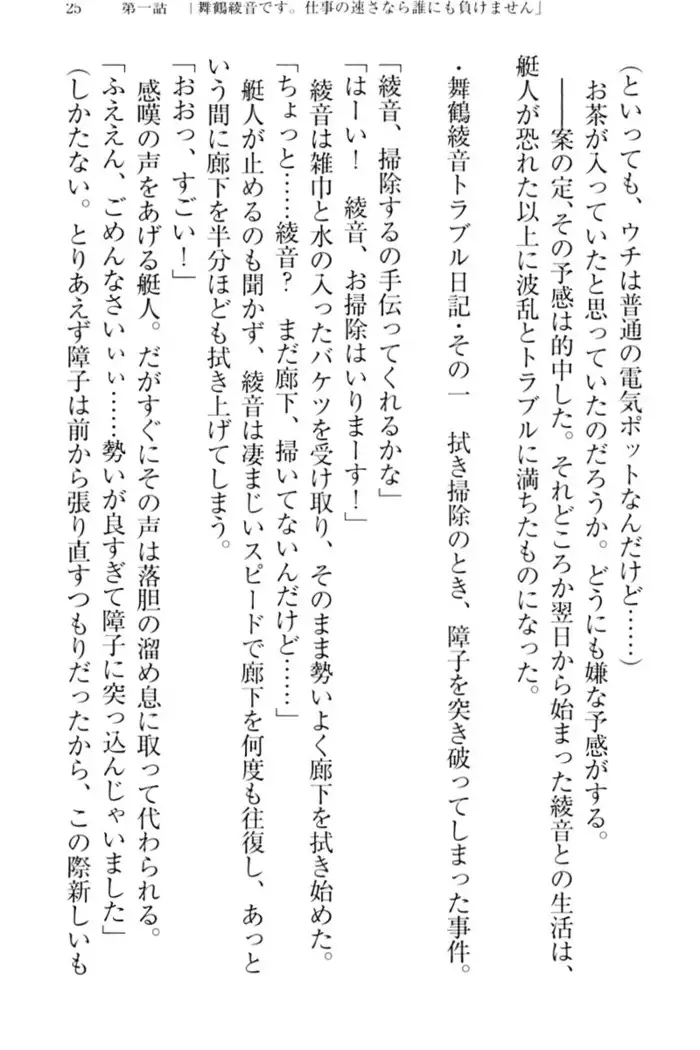 25　第一話　「舞鶴綾音です。仕事の速さなら誰にも負けません」
(といっても、ウチは普通の電気ポットなんだけど……)
お茶が入っていたと思っていたのだろうか。どうにも嫌な予感がする。
――案の定、その予感は的中した。それどころか翌日から始まった綾音との生活は、
艇人が恐れた以上に波乱とトラブルに満ちたものになった。
・舞鶴綾音トラブル日記・その一　拭き掃除のとき、障子を突き破ってしまった事件。
「綾音、掃除するの手伝ってくれるかな」
「はーい！　綾音、お掃除はいりまーす！」
綾音は雑巾と水の入ったバケツを受け取り、そのまま勢いよく廊下を拭き始めた。
「ちょっと……綾音？　まだ廊下、掃いてないんだけど……」
艇人が止めるのも聞かず、綾音は凄まじいスピードで廊下を何度も往復し、あっと
いう間に廊下を半分ほども拭き上げてしまう。
「おおっ、すごい！」
感嘆の声をあげる艇人。だがすぐにその声は落胆の溜め息に取って代わられる。
「ふええん、ごめんなさいぃぃ……勢いが良すぎて障子に突っ込んじゃいました」
(しかたない。とりあえず障子は前から張り直すつもりだったから、この際新しいも